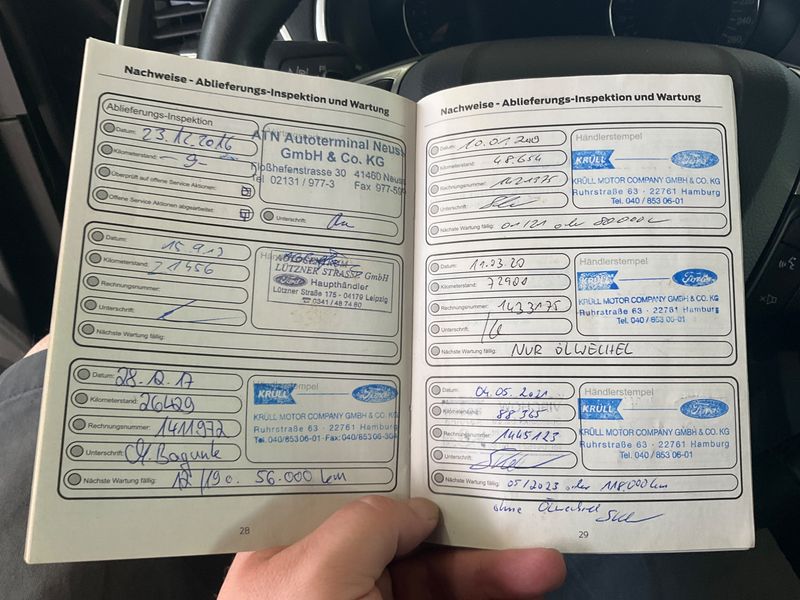 Nachweise - Ablieferungs-Inspektion und Wartung
Ablieferungs-Inspektion
Datum: 23.12.2016
Kilometerstand: - 9 -
Überprüft auf offene Service Aktionen:
Offene Service Aktionen abgearbeitet:
ATN Autoterminal Neuss
GmbH & Co. KG
Floßhafenstrasse 30 41460 Neuss
Tel 02131 / 977-3 Fax 977-
Unterschrift:
Datum: 15.9.17
Kilometerstand: 21456
Rechnungsnummer:
Unterschrift:
Nächste Wartung fällig:
LÜTZNER STRASSE GmbH
Ford Haupthändler
Lützner Straße 175 - 04179 Leipzig
☎ 0341 / 48 74 60
Datum: 28.12.17
Kilometerstand: 26429
Rechnungsnummer: 1411972
Unterschrift:
Nächste Wartung fällig: 12/19 o. 56.000 km
Händlerstempel
KRÜLL Ford
KRÜLL MOTOR COMPANY GMBH & CO. KG
Ruhrstraße 63 - 22761 Hamburg
Tel. 040/853 06-01 · Fax: 040/853 06-304
28
Nachweise - Ablieferungs-Inspektion und Wartung
Datum: 10.01.2019
Kilometerstand: 48.654
Rechnungsnummer: 1421375
Unterschrift:
Nächste Wartung fällig: 01/21 oder 80000 km
Händlerstempel
KRÜLL Ford
KRÜLL MOTOR COMPANY GMBH & CO. KG
Ruhrstraße 63 · 22761 Hamburg
Tel. 040 / 853 06-01
Datum: 11.03.20
Kilometerstand: 72900
Rechnungsnummer: 1433175
Unterschrift:
Nächste Wartung fällig: NUR ÖLWECHSEL
Händlerstempel
KRÜLL Ford
KRÜLL MOTOR COMPANY GMBH & CO. KG
Ruhrstraße 63 · 22761 Hamburg
Tel. 040 / 853 06-01
Datum: 04.05.2021
Kilometerstand: 88.365
Rechnungsnummer: 1445123
Unterschrift:
Nächste Wartung fällig: 05/2023 oder 118000 km
Händlerstempel
KRÜLL Ford
KRÜLL MOTOR COMPANY GMBH & CO. KG
Ruhrstraße 63 · 22761 Hamburg
Tel. 040 / 853 06-01
ohne Ölwechsel
29